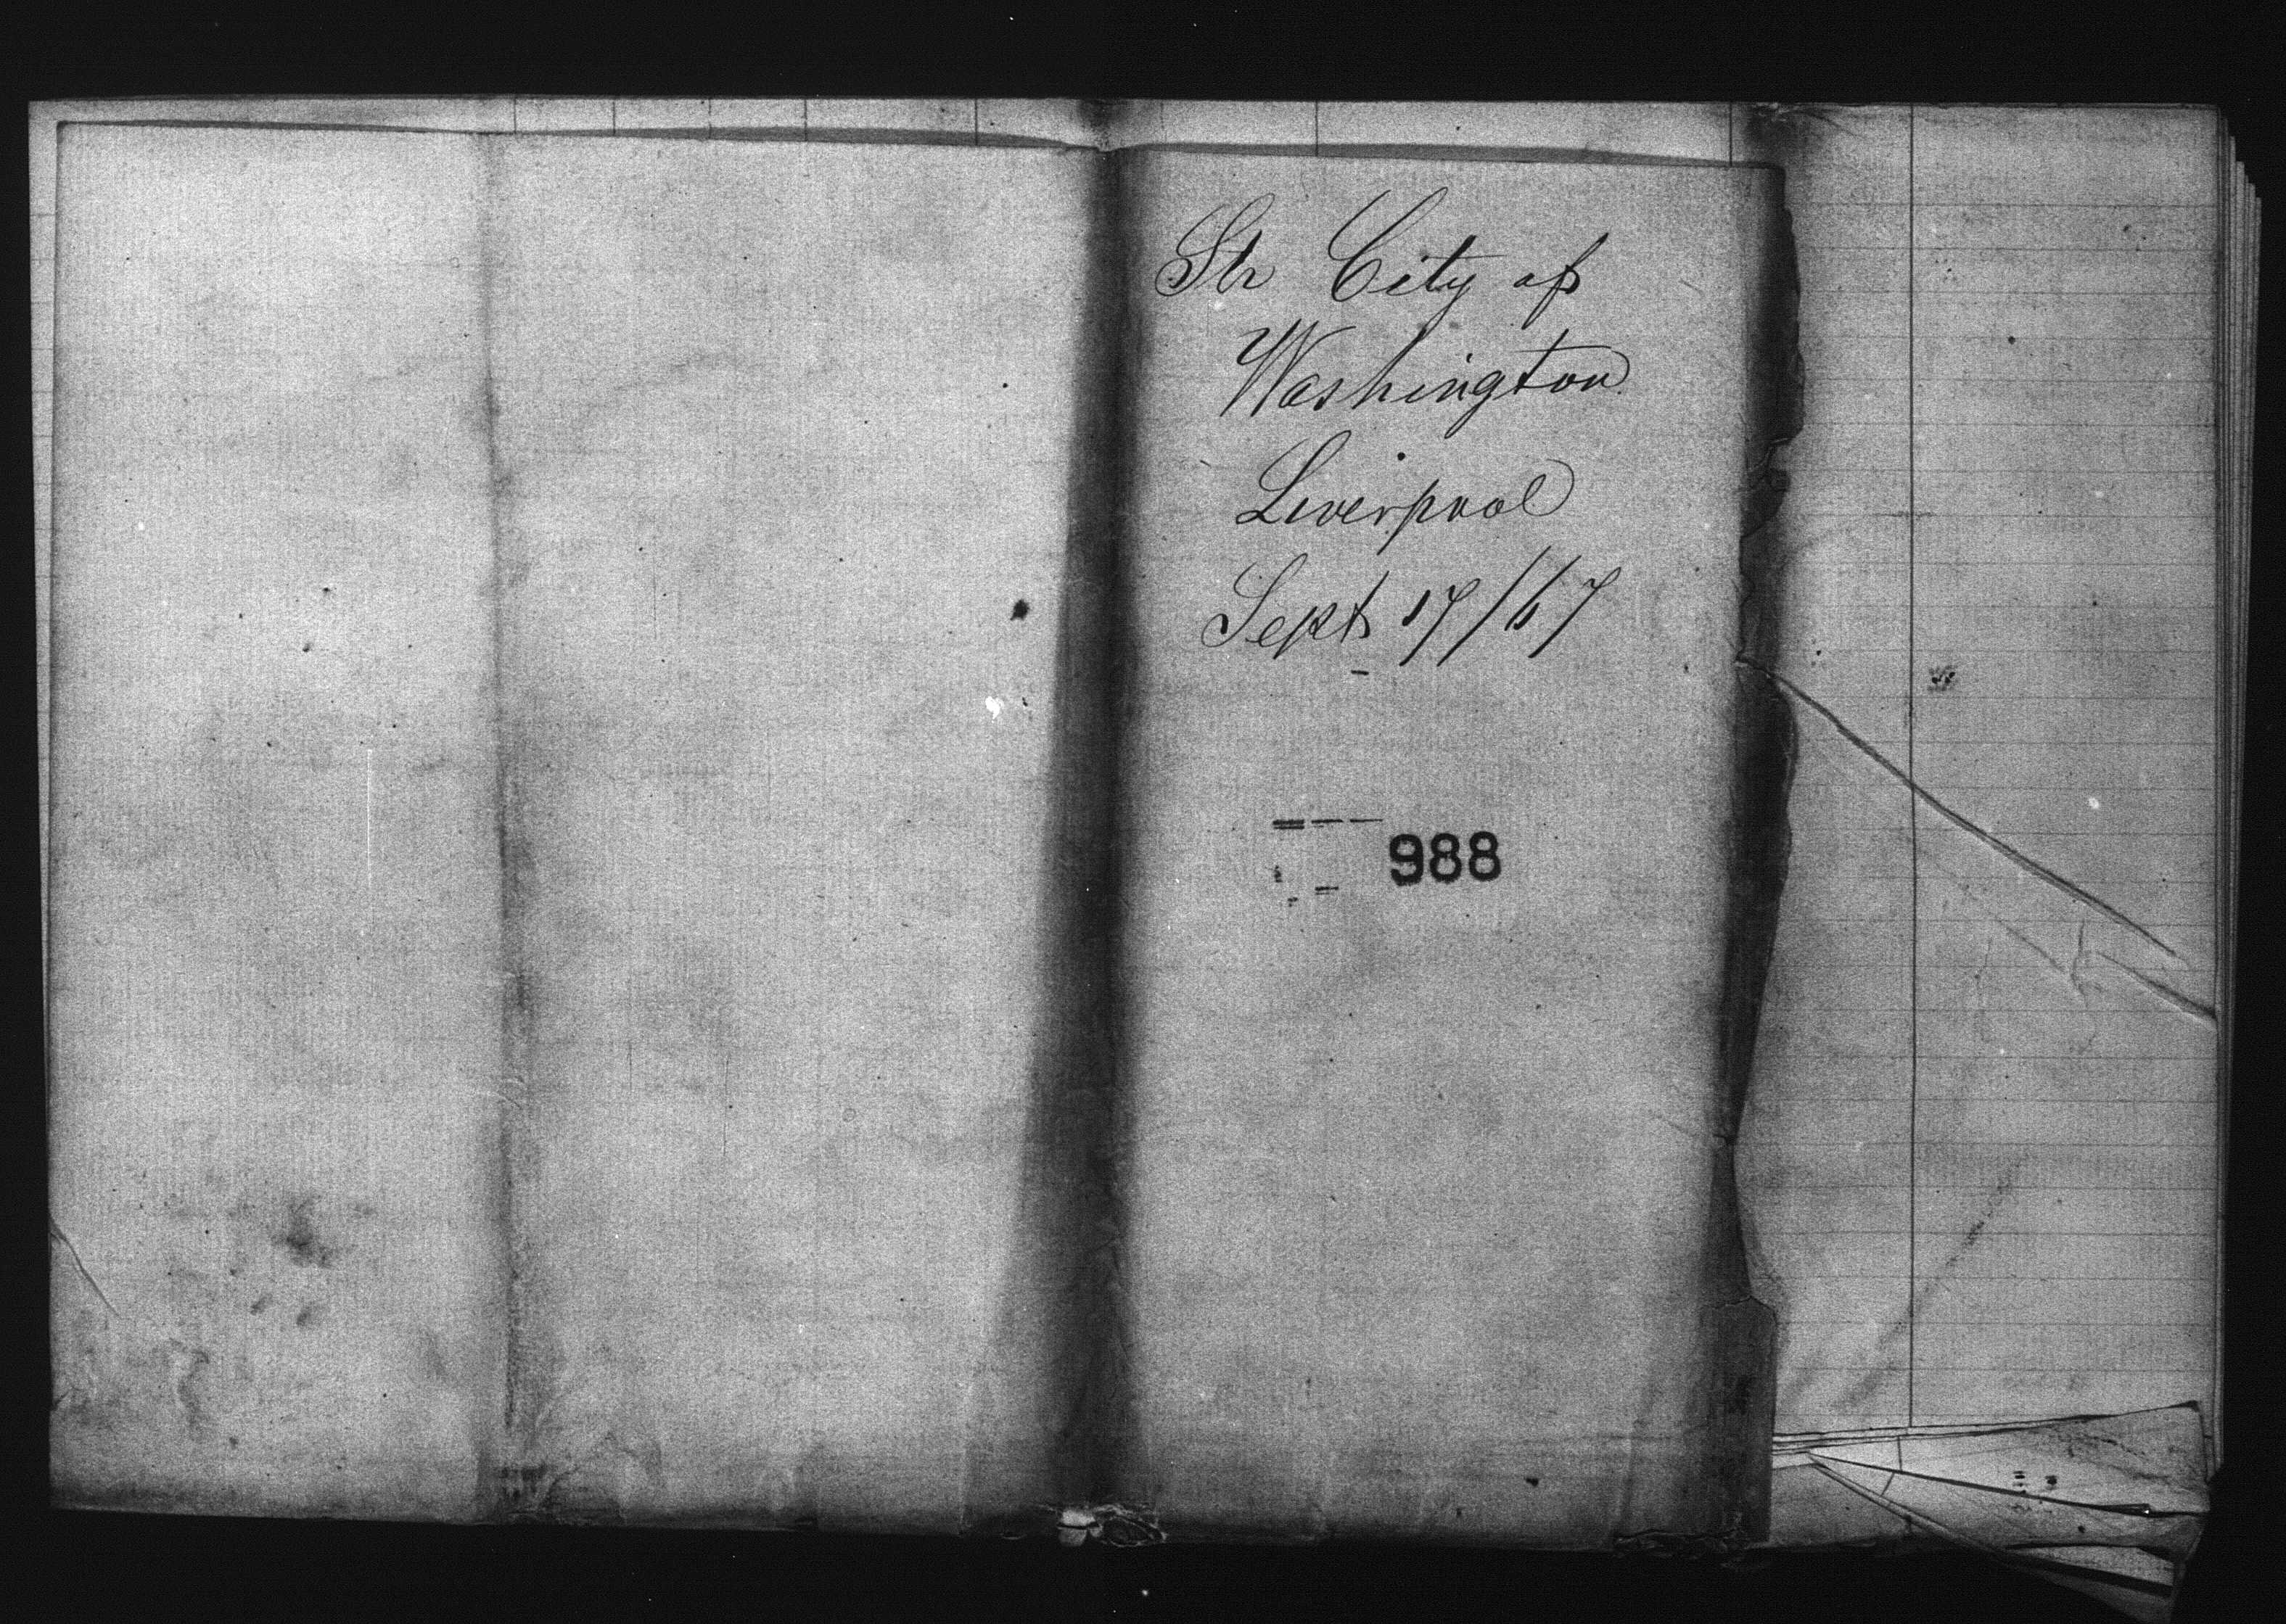 Str City of
Washington
Liverpool
Sept 17/67
988